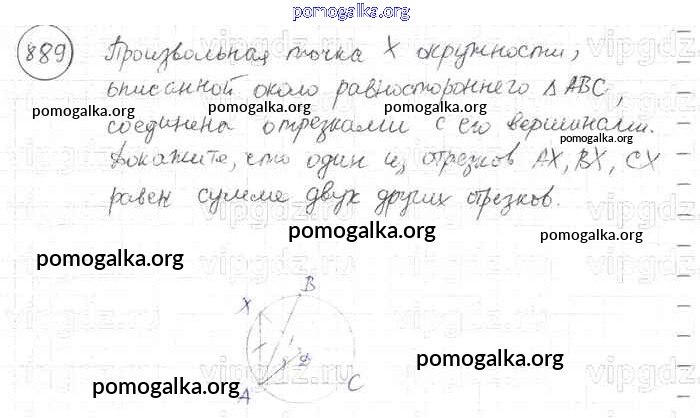 pomogalka.org
889 Произвольная точка X окружности,
описанной около равностороннего Δ ABC,
pomogalka.org pomogalka.org pomogalka.org
соединена отрезками с его вершинами.
Докажите, что один из отрезков AX, BX, CX
равен сумме двух других отрезков.
pomogalka.org pomogalka.org
pomogalka.org
B
X
A C
pomogalka.org
pomogalka.org